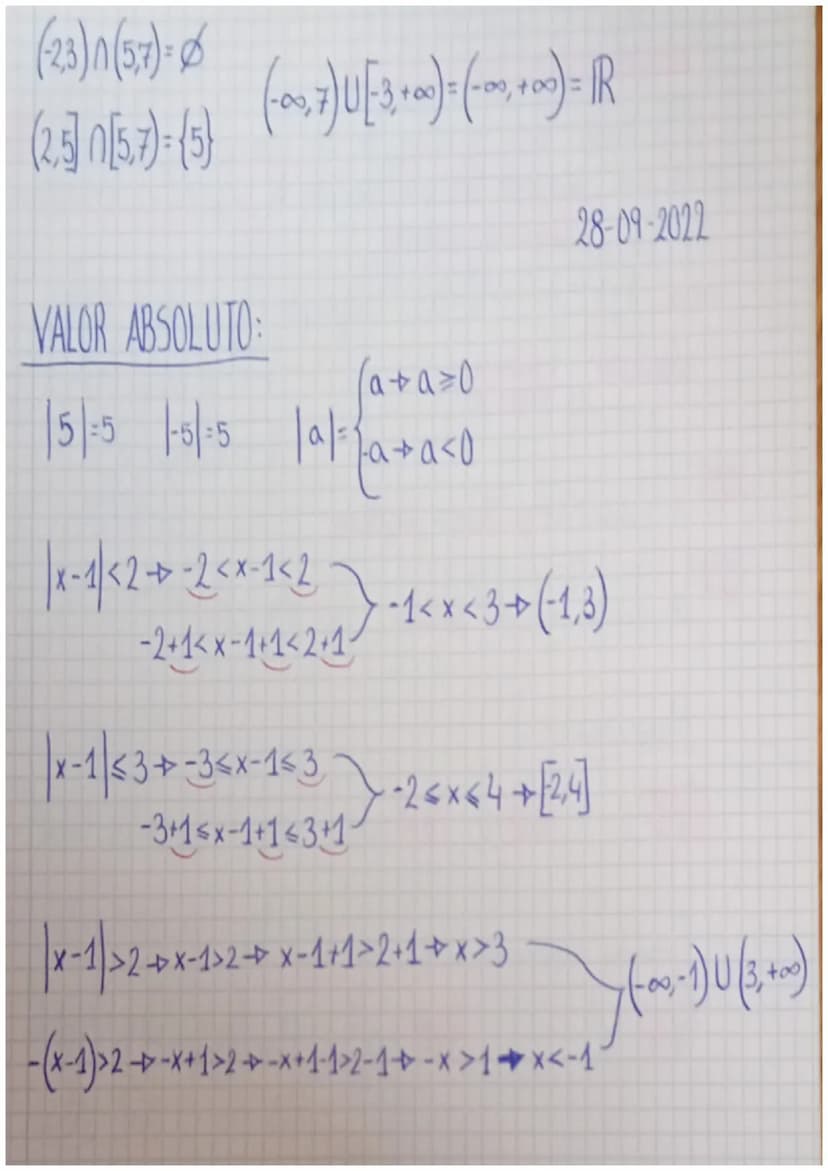 (-2,3)∩(5,7)=∅
(2,5]∩[5,7)={5}
(-∞,7)∪[-3,+∞)=(-∞,+∞)=ℝ
28-09-2022
VALOR ABSOLUTO:
|5|=5 |-5|=5 |a|={a→a≥0
-a→a<0
|x-1|<2→-2<x-1<2
-2+1<x-1+1<2+1
-1<x<3→(-1,3)
|x-1|≤3→-3≤x-1≤3
-3+1≤x-1+1≤3+1
-2≤x≤4→[-2,4]
|x-1|>2→x-1>2→x-1+1>2+1→x>3
-(x-1)>2→-x+1>2→-x+1-1>2-1→-x>1→x<-1
(-∞,-1)∪(3,+∞)